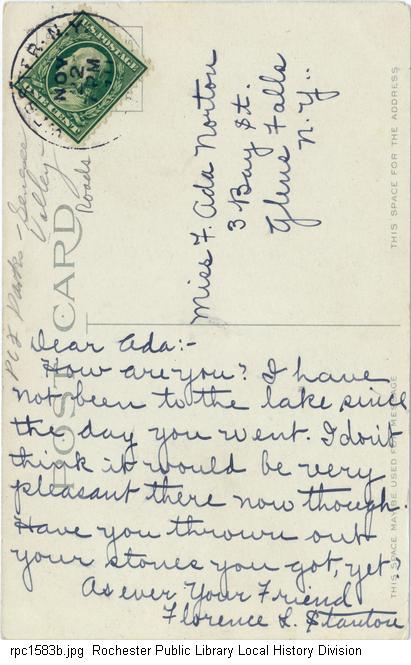 U.S. POSTAGE
ONE CENT
NOV
22
PM
N.Y.
Miss F. Ada Norton
3 Bay St.
Glens Falls
N.Y.
THIS SPACE FOR THE ADDRESS
Parks - Genesee
Valley
Roads
POST CARD
THIS SPACE MAY BE USED FOR MESSAGE
Dear Ada:-
How are you? I have
not been to the lake since
the day you went. I don't
think it would be very
pleasant there now though.
Have you thrown out
your stones you got, yet?
As ever Your Friend
Florence L. Stanton
rpc1583b.jpg Rochester Public Library Local History Division